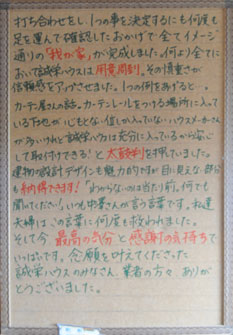 打ち合わせをし、1つの事を決定するにも何度も
足を運んで確認したおかげで全てイメージ
通りの「我が家」が完成しました。何より全てにお
いて誠栄ハウスは用意周到。その慎重さが
信頼感をアップさせました。1つの例をあげると…。
カーテン屋さんの話。カーテンレールをつける場所に入って
いる下地が"いどもとない"但しか入っていないハウスメーカーさん
が多いけれど誠栄ハウスは充分に入っているから安心
して取付けできる!と太鼓判を押していました。
建物の設計デザインも魅力的ですが目に見えない部分
も納得できます!「わからないのは当たり前。何でも
聞いてください」いつも中養さんが言う言葉です。私達
夫婦はこの言葉に何度も救われました。
そして今、最高の気分と感謝の気持ちで
いっぱいです。念願を叶えてくださった
誠栄ハウスのみなさん、業者の方々 ありが
とうございました。